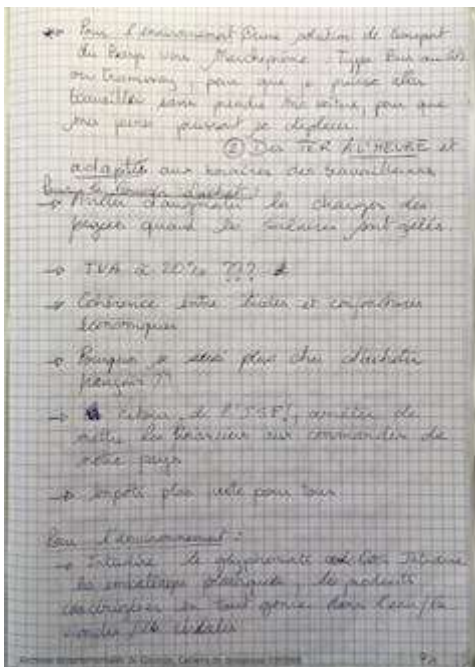 → Pour l'environnement : Une solution de transport
du Bourg vers Marcheprime. Type Bus
ou tramway, pour que je puisse aller
travailler sans prendre ma voiture, pour que
mes puissent se déplacer
② Des TER À L'HEURE et
adaptés aux horaires des travailleurs
Pour le pouvoir d'achat :
→ Arrêter d'augmenter les charges des
quand les salaires sont gelés.
→ TVA à 20% ???
→ Cohérence entre études et conjonctures
économiques
→ Pourquoi est plus cher d'acheter
français ??
→ retour de l'ISF!, arrêter de
mettre les financiers aux commandes de
notre pays
→ impôts plus juste pour tous
Pour l'environnement :
→ Interdire le glyphosate Interdire
les emballages plastiques, les produits
cancérigènes en tout genre dans l'eau/la